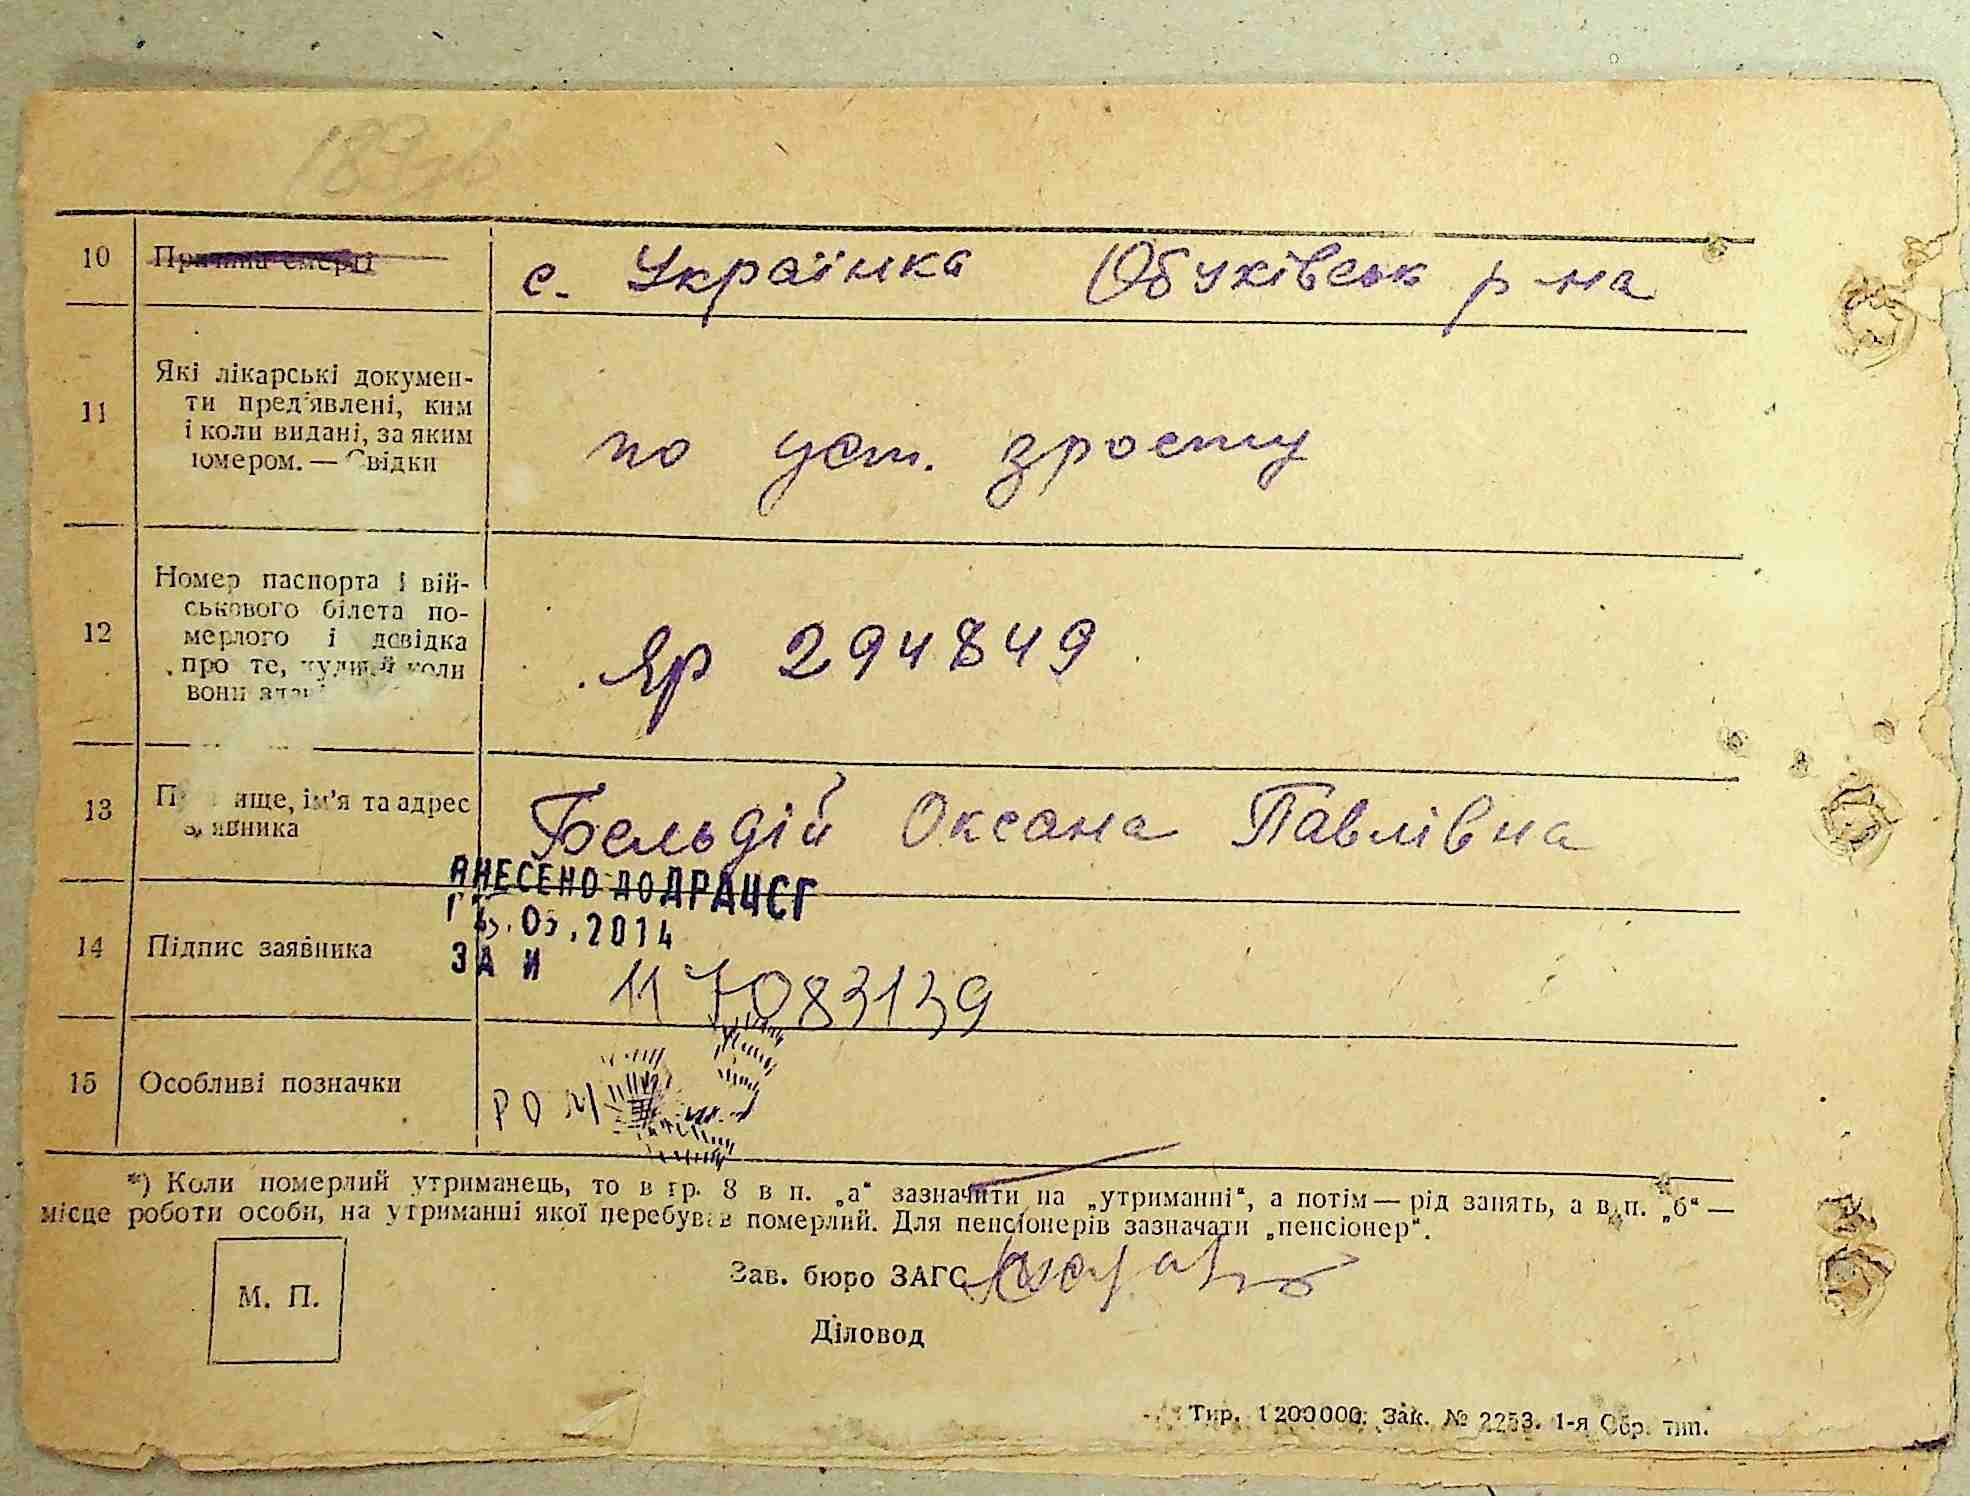 10 Причина смерті с. Українка Обухівськ р-на
11 Які лікарські докумен-
ти пред'явлені, ким
і коли видані, за яким
номером. — Свідки
по уст. зросту
12 Номер паспорта і вій-
ськового білета по-
мерлого і довідка
про те, куди й коли
вони здані
Яр 294849
13 Прізвище, ім'я та адрес
заявника
Бельдій Оксана Павлівна
ВНЕСЕНО ДО ДРАЦСГ
.05.2014
14 Підпис заявника
ЗА №
117083139
15 Особливі позначки
*) Коли померлий утриманець, то в гр. 8 в п. „а“ зазначити на „утриманні“, а потім — рід занять, а в п. „б“ —
місце роботи особи, на утриманні якої перебував померлий. Для пенсіонерів зазначати „пенсіонер“.
Зав. бюро ЗАГС
М. П.
Діловод
Тир. 1200000. Зак. № 2253. 1-я Обр. тип.